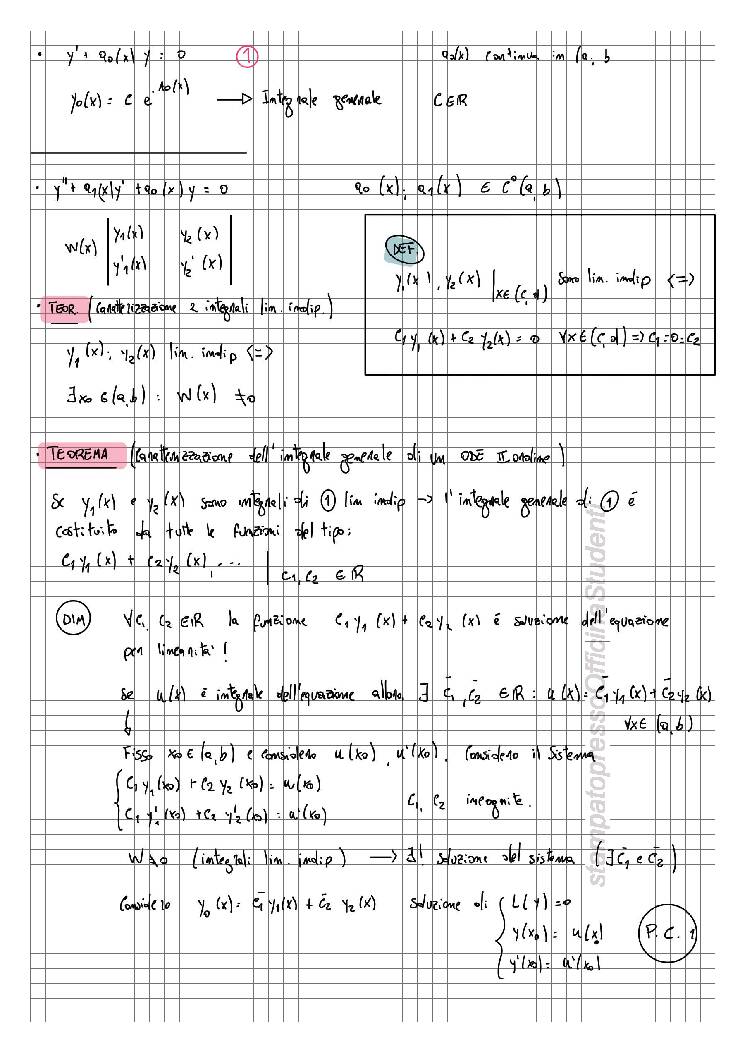 • y' + a0(x) y = 0 ① a0(x) continua in (a, b
y0(x) = c e^-A0(x) → Integrale generale C ∈ ℝ
• y'' + a1(x)y' + a0(x) y = 0 a0(x), a1(x) ∈ C°(a, b)
W(x) | y1(x) y2(x) |
| y'1(x) y2'(x) |
DEF.
y1(x), y2(x) |x∈(c,d) sono lin. indip <=>
C1 y1(x) + C2 y2(x) = 0 ∀x∈(c,d) => C1=0=C2
• TEOR. (Caratterizzazione 2 integrali lin. indip.)
y1(x), y2(x) lin. indip <=>
∃x0 ∈(a,b) : W(x) ≠0
• TEOREMA (Caratterizzazione dell'integrale generale di un ODE II ordine)
Se y1(x) e y2(x) sono integrali di ① lin indip → l'integrale generale di ① é
costituito da tutte le funzioni del tipo:
C1 y1(x) + C2 y2(x), ... | C1, C2 ∈ ℝ
DIM ∀C1 C2 ∈ℝ la funzione C1 y1(x) + C2 y2(x) é soluzione dell'equazione
per linearità!
Se u(x) è integrale dell'equazione allora ∃ C̄1, C̄2 ∈ℝ : u(x) = C̄1 y1(x) + C̄2 y2(x)
∀x∈ (a, b)
↓
Fisso x0 ∈ (a, b) e considero u(x0), u'(x0). Considero il Sistema
{ C1 y1(x0) + C2 y2(x0) = u(x0)
{ C1 y'1(x0) + C2 y'2(x0) = u'(x0)
C1, C2 incognite.
W≠0 (integrali lin. indip) → ∃! soluzione del sistema (∃ C̄1 e C̄2)
Considero y0(x) = C̄1 y1(x) + C̄2 y2(x) soluzione di { L(y) = 0
{ y(x0) = u(x0)
{ y'(x0) = u'(x0)
P.C. 1
stampatopressoOfficinaStudenti